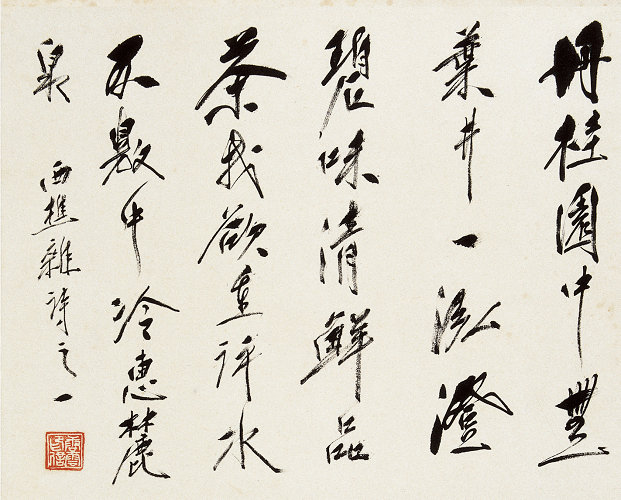 丹桂園中豐
葉井一泓澄
碧味清鮮品
茶我欲重評水
不數中冷惠麓
泉
西樵雜詩之一